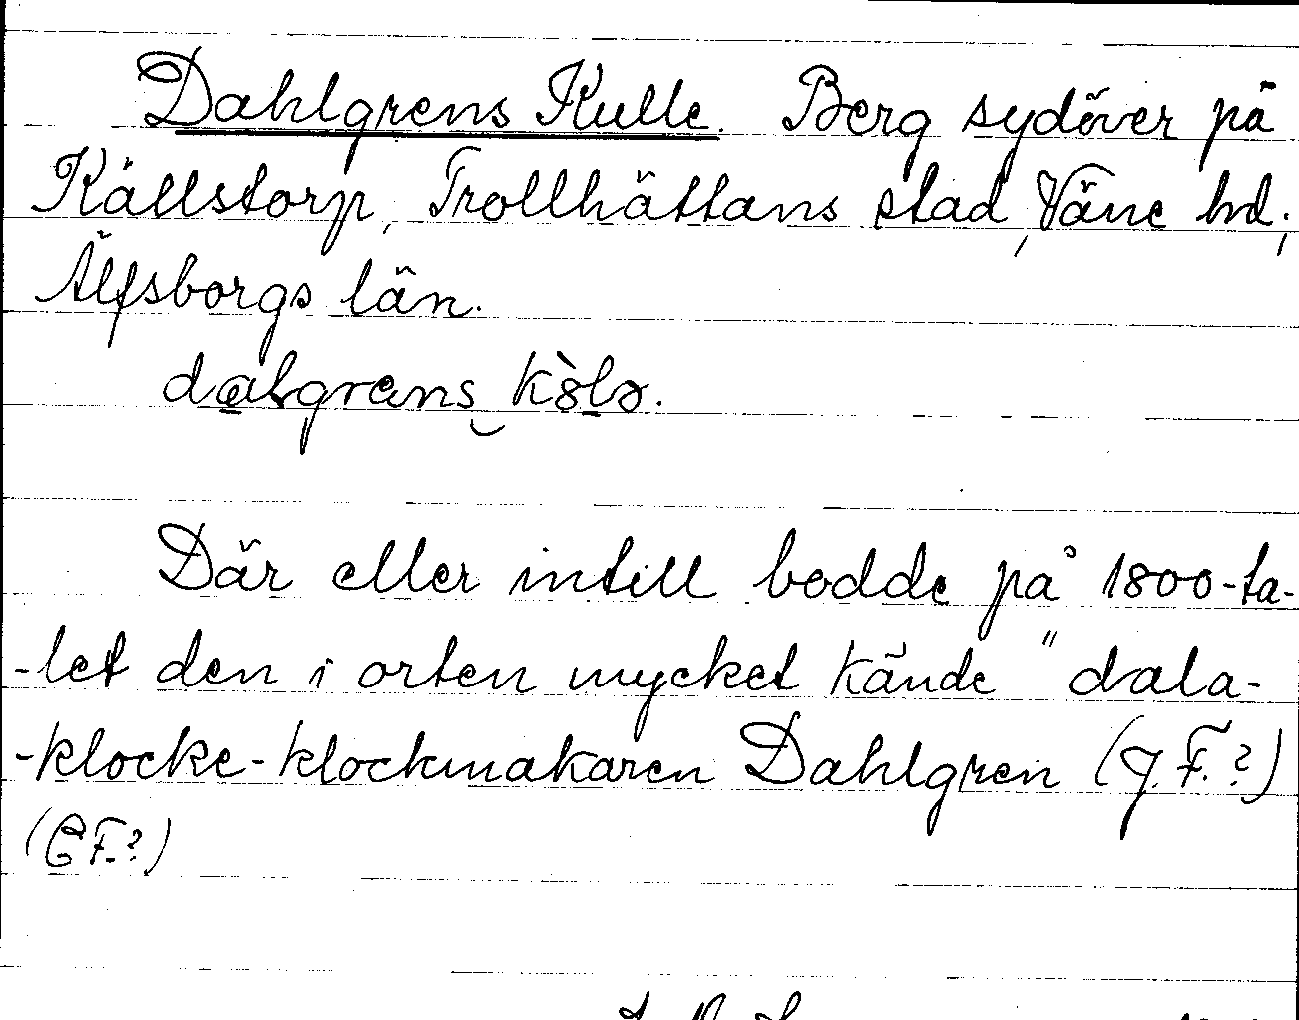 Dahlgrens Kulle. Berg sydöver på
Källstorp, Trollhättans stad, Väne hd.,
Älfsborgs län.
dalgrens kòlə.
Där eller intill bodde på 1800-ta-
-let den i orten mycket kände "dala-
-klocke-klockmakaren Dahlgren (J. F.?)
(C F.?)